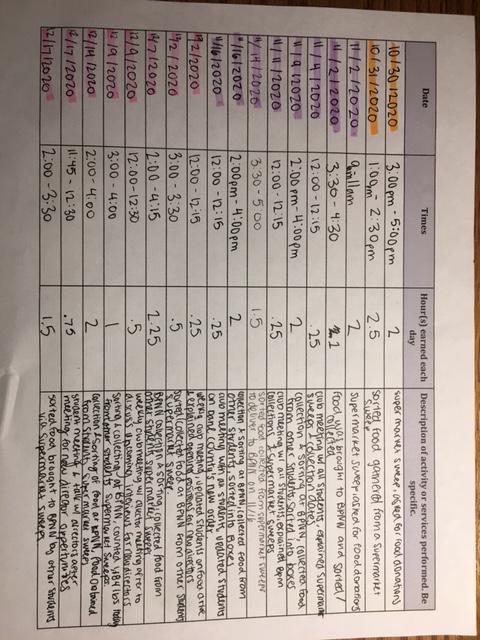 Date Times Hour(s) earned each day Description of activity or services performed. Be specific.
10/30/2020 3:00pm - 5:00pm 2 super market sweep asked for food donations
10/31/2020 1:00pm - 2:30pm 2.5 sorted food gathered from a supermarket sweep
11/2/2020 9am-11am 2 supermarket sweep asked for food donations
11/2/2020 3:30 - 4:30 1 food was brought to BPNN and sorted / collected
11/4/2020 12:00 - 12:15 .25 club meeting w/ all students, explained supermarket sweeps & collection dates
11/9/2020 2:00pm - 4:00pm 2 collection & sorting at BPNN, collected food from other students, sorted into boxes
11/11/2020 12:00 - 12:15 .25 club meeting w/ all students, explained BPNN collections & supermarket sweeps
11/14/2020 3:30 - 5:00 1.5 sorted food collected from supermarket sweep to deliver to BPNN
11/16/2020 2:00pm - 4:00pm 2 collection & sorting at BPNN, collected food from other students, sorted into boxes
11/18/2020 12:00 - 12:15 .25 club meeting w/ all students, updated students on food
12/2/2020 12:00 - 12:15 .25 weekly club meeting, updated students on food drive & explained opening positions for new directors
12/2/2020 3:00 - 3:30 .5 sorted/collected food at BPNN from other students supermarket sweep
12/7/2020 2:00 - 4:15 2.25 BPNN collection & sorting, collected food from other students supermarket sweeps
12/9/2020 12:00 - 12:30 .5 weekly club meeting w/ director meeting after to discuss applications for new directors
12/9/2020 3:00 - 4:00 1 sorting & collecting at BPNN, counted lbs from other students supermarket sweeps
12/14/2020 2:00 - 4:00 2 collection & sorting of food at BPNN, food obtained from students supermarket sweep
12/17/2020 11:45 - 12:30 .75 student meeting & talk w/ directors after meeting for new director opportunities
12/17/2020 2:00 - 3:30 1.5 sorted food brought to BPNN by other students via supermarket sweeps